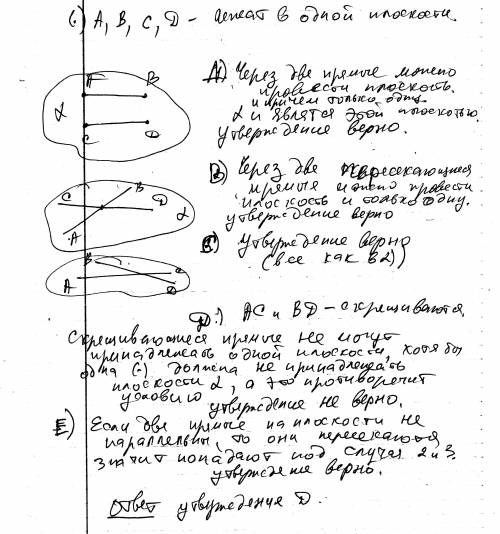 (.) A, B, C, D - лежат в одной плоскости.
A B
α
C D
A) Через две прямые можно
провести плоскость.
и причем только одну.
α и является этой плоскостью.
утверждение верно.
B) Через две пересекающиеся
прямые можно провести
плоскость и только одну.
утверждение верно
C B
D α
A
C) утверждение верно
(все как в 2))
B C
A D
D.) AC и BD - скрещиваются.
Скрещивающиеся прямые не могут
принадлежать одной плоскости, хотя бы
одна (.) должна не принадлежать
плоскости α, а это противоречит
условию
утверждение не верно.
E) Если две прямые на плоскости не
параллельны, то они пересекаются
значит попадают под случай 2 и 3.
утверждение верно.
Ответ утверждения D.